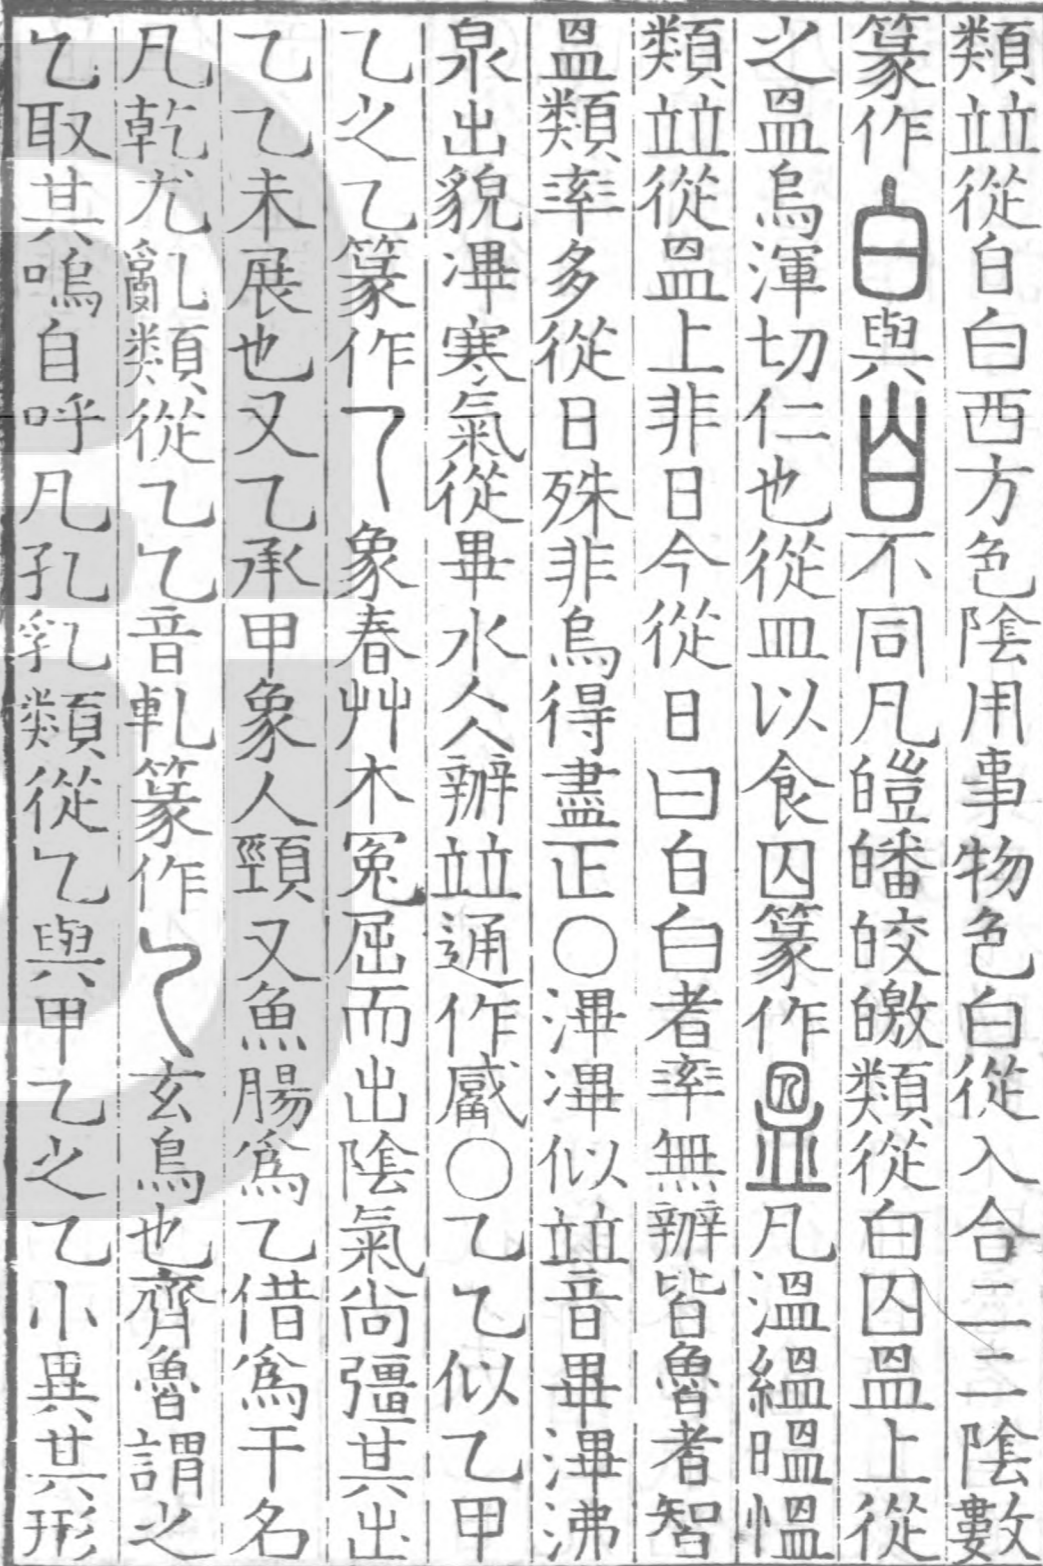 類竝從自白西方色陰用事物色白從入合二二陰數
篆作與不同凡皚皤皎皦類從白囚昷上從
之昷烏渾切仁也從皿以食囚篆作凡溫縕暼慍
類竝從昷上非日今從日曰白白者率無辦皆魯者智
昷類率多從日殊非烏得盡正○㵒滭似竝音畢㵒沸
泉出貌滭寒氣從畢水仌辦竝通作觱○乙乞似乙甲
乙之乙篆作象春艸木冤屈而出陰氣尙彊其出
乙乙未展也又乙承甲象人頸又魚腸爲乙借爲干名
凡乾尤亂類從乙乞音軋篆作玄鳥也齊魯謂之
乞取其嗚自呼凡孔乳類從乞與甲乙之乙小異其形